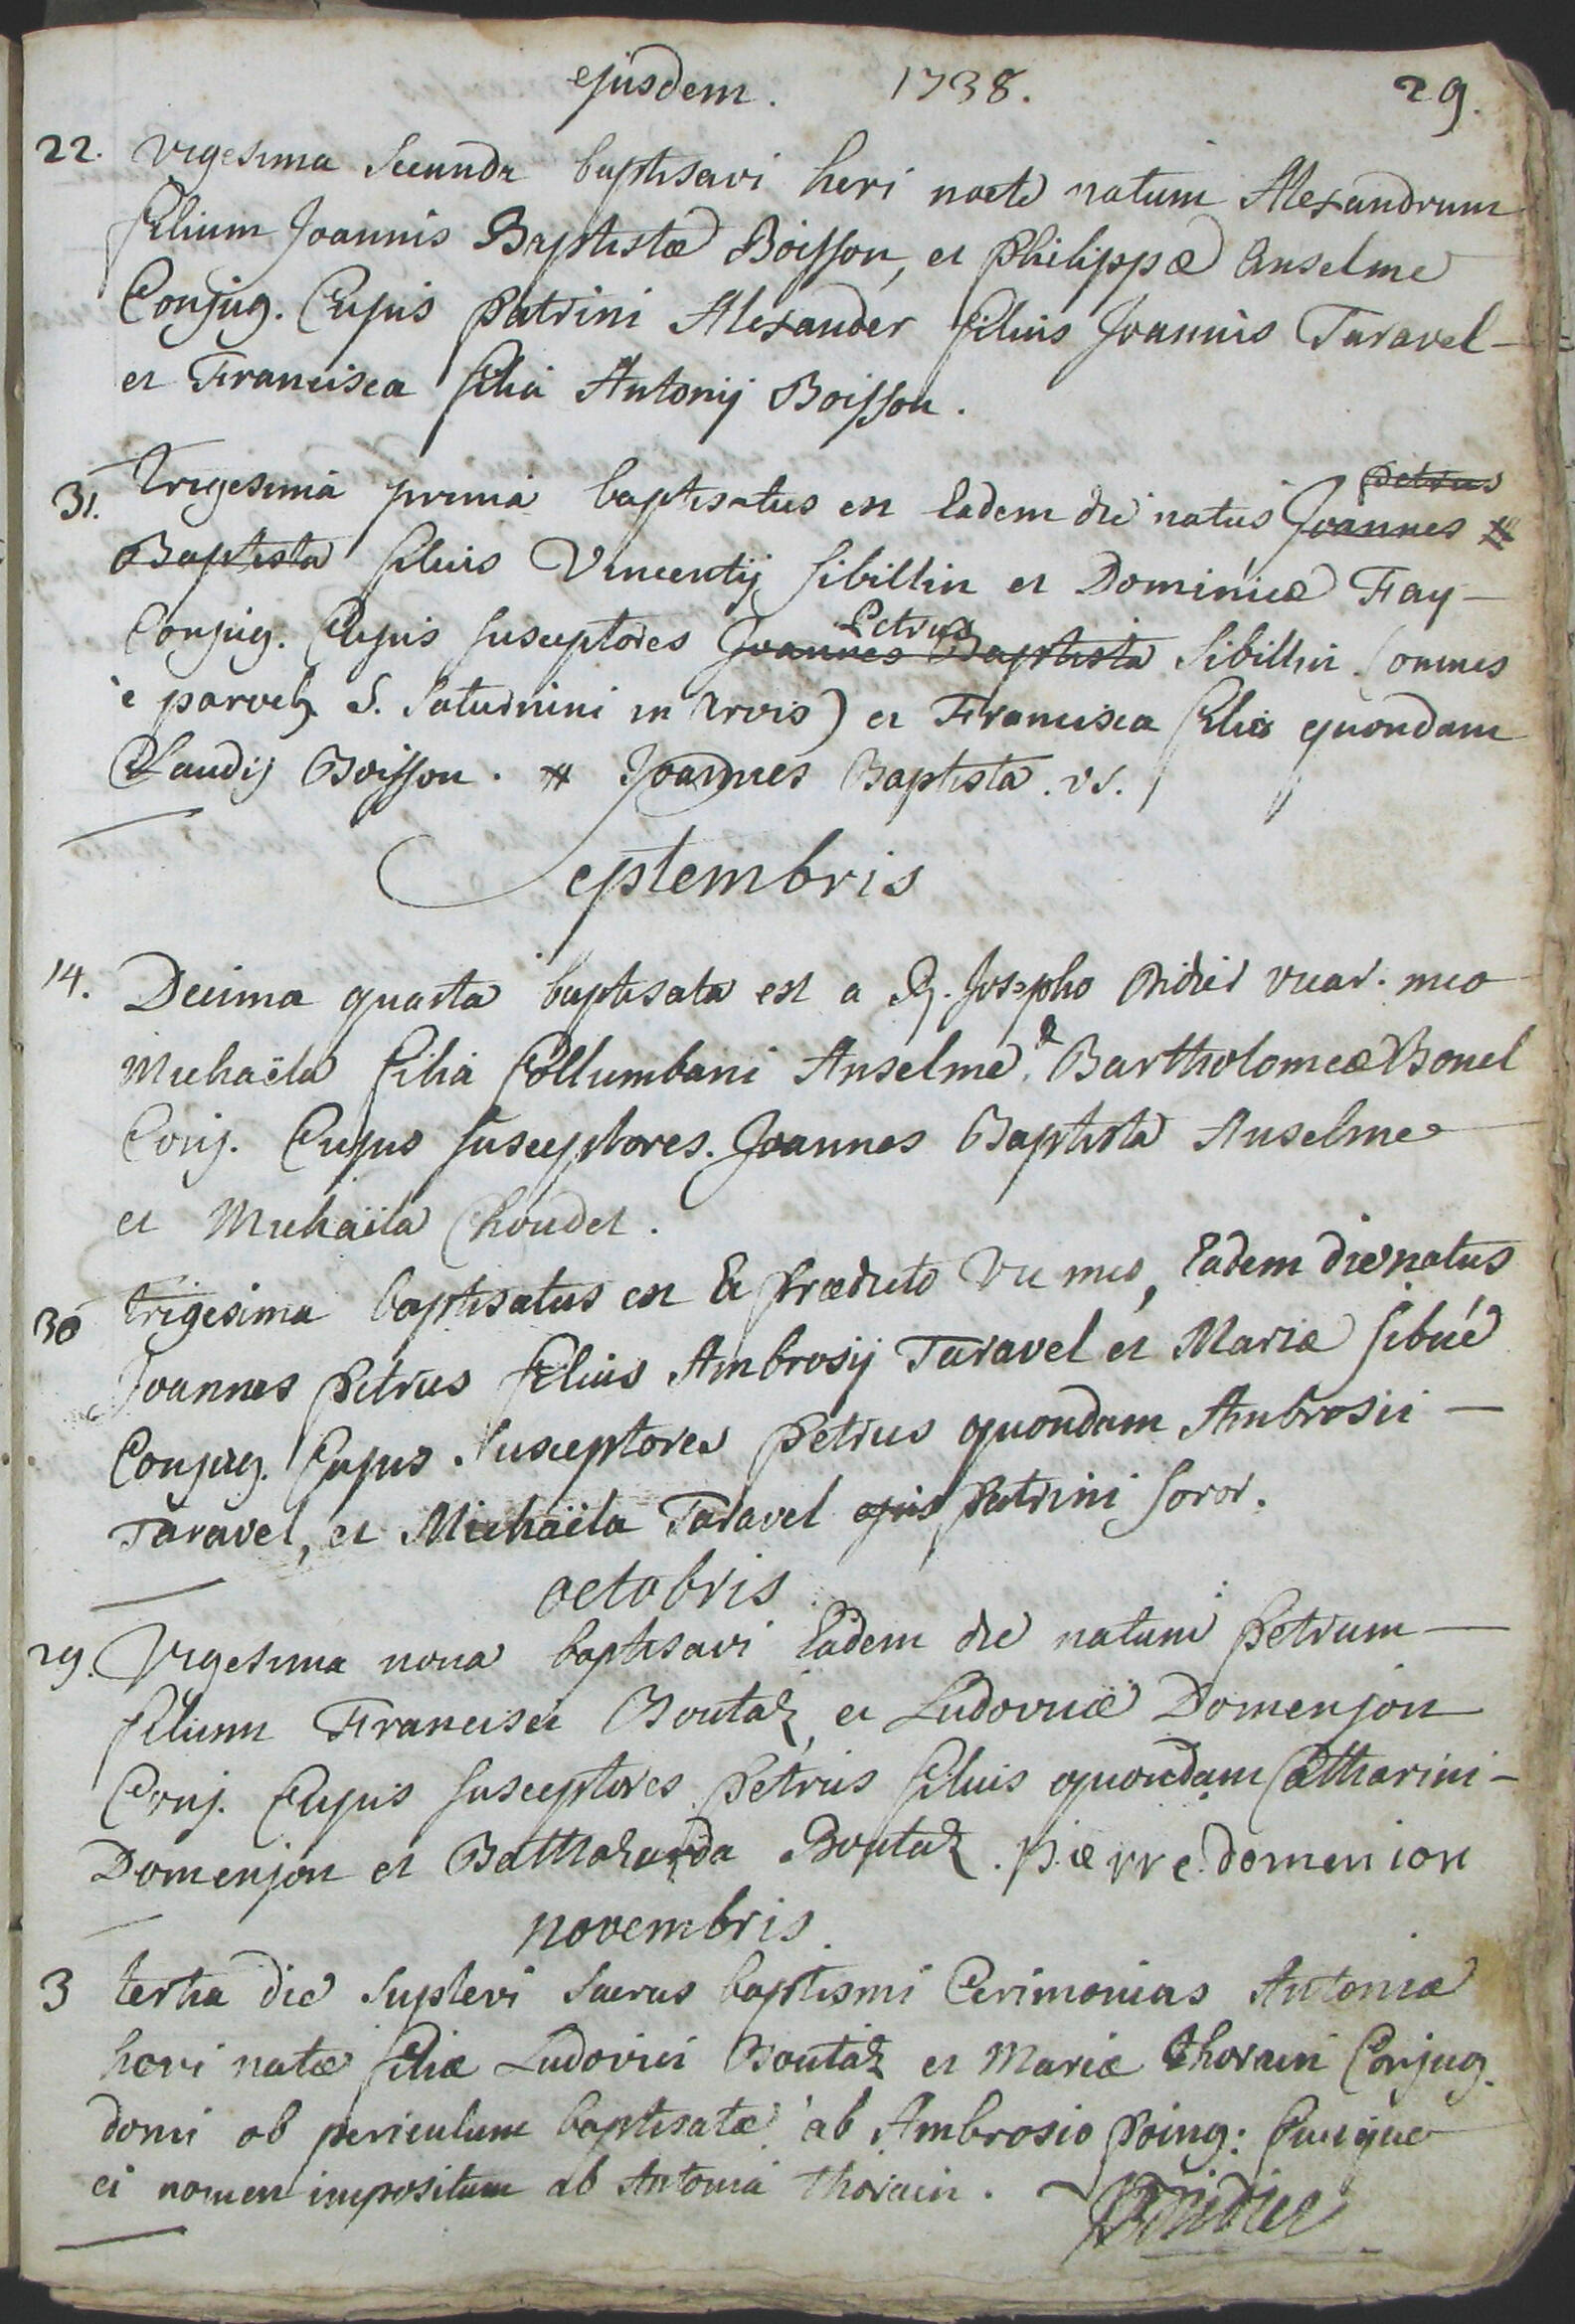 ejusdem. 1738. 29.
22. vigesima secunda baptisavi heri nocte natum Alexandrum
filium Joannis Baptistæ Boisson, et philippæ Anselme
Conjug. Cujus patrini Alexander filius Joannis Taravel –
et Francisca filia Antonij Boisson.
petrus
31. trigesima prima baptisatus est Eadem die natus Joannes #
Baptista filius Vincentij Sibillin et Dominicæ Fay –
Petrus
Conjug. Cujus susceptores Joannes Baptista Sibillin (omnes
è paroch. S. Saturnini in Urvis) et Francisca filia quondam
Claudij Boisson. # Joannes Baptista. vs.
Septembris
14. Decima quarta baptisata est a Josepho Didier vicar. meo
Michaëla filia Collumbani Anselme & Bartholomeæ Bonel
Conj. Cujus susceptores. Joannes Baptista Anselme
et Michaëla Choudet.
30 trigesima baptisatus est a prædicto Vic meo, Eadem die natus
Joannes petrus filius Ambrosij Taravel et Mariæ Sibué
Conjug. Cujus susceptores petrus quondam Ambrosii –
Taravel, et Michaëla Taravel ejus patrini soror.
octobris
29. Vigesima nona baptisavi Eadem die natum petrum –
filium Francisci Boutaz, et Ludovicæ Domenjon
Conj. Cujus susceptores petrus filius quondam Catharini –
Domenjon et Balthazarda Boutaz. piærre domenion
novembris
3 tertia die suplevi sacras baptismi Cerimonias Antoniæ
heri natæ filiæ Ludovici Boutaz et Mariæ thorain Conjug.
domi ob periculum baptisatæ ab Ambrosio poing: fuique
ei nomen impositum ab Antonia thorain.